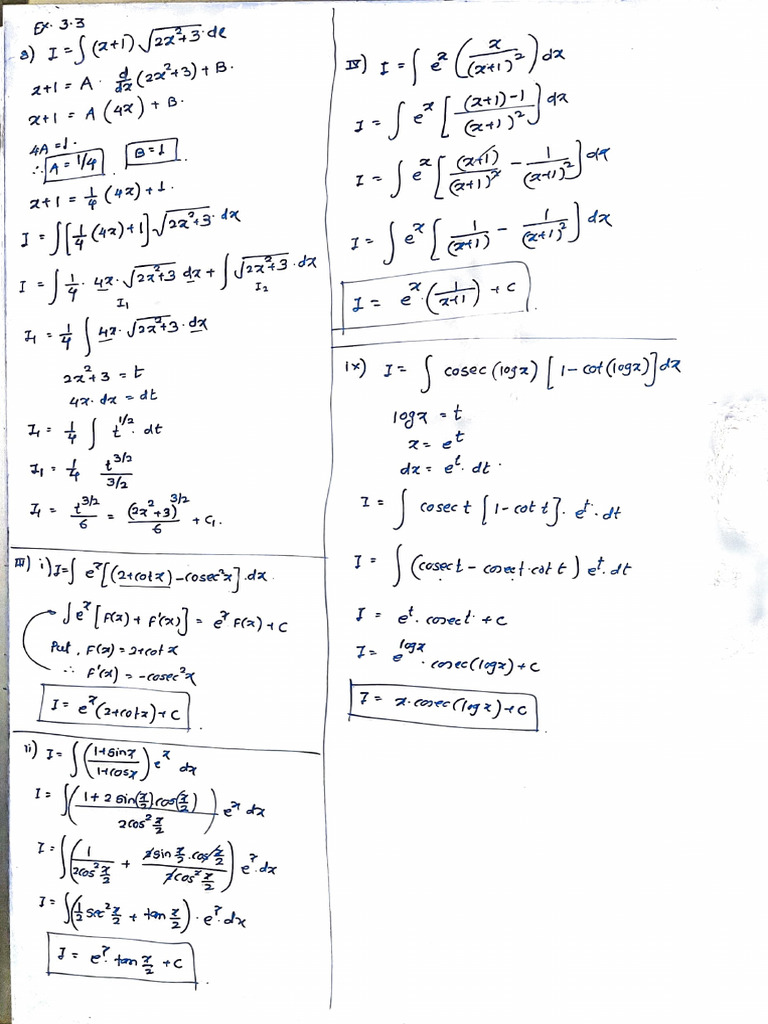 Ex. 3.3
8) I = ∫ (x+1) √(2x²+3) · dx
x+1 = A · d/dx (2x²+3) + B.
x+1 = A (4x) + B.
4A = 1.
∴ A = 1/4 B = 1
x+1 = 1/4 (4x) + 1.
I = ∫ [1/4 (4x) + 1] √(2x²+3) · dx
I = ∫ 1/4 · 4x · √(2x²+3) dx + ∫ √(2x²+3) · dx
I₁ I₂
I₁ = 1/4 ∫ 4x · √(2x²+3) · dx
2x²+3 = t
4x · dx = dt
I₁ = 1/4 ∫ t^(1/2) · dt
I₁ = 1/4 t^(3/2) / (3/2)
I₁ = t^(3/2)/6 = (2x²+3)^(3/2)/6 + C₁.
III) i) I = ∫ eˣ [(2+cotx) - cosec²x] · dx.
∫ eˣ [f(x) + f'(x)] = eˣ f(x) + C
Put, f(x) = 2+cotx
∴ f'(x) = -cosec²x
I = eˣ (2+cotx) + C
ii) I = ∫ ((1+sinx)/(1+cosx)) eˣ dx
I = ∫ ((1 + 2 sin(x/2) cos(x/2)) / (2cos² x/2)) eˣ dx
I = ∫ (1/(2cos² x/2) + (2 sin x/2 · cos x/2)/(2cos² x/2)) eˣ · dx
I = ∫ (1/2 sec² x/2 + tan x/2) · eˣ · dx
I = eˣ · tan x/2 + C
IV) I = ∫ eˣ (x/(x+1)²) dx
I = ∫ eˣ [((x+1)-1)/(x+1)²] dx
I = ∫ eˣ [(x+1)/(x+1)² - 1/(x+1)²] dx
I = ∫ eˣ [1/(x+1) - 1/(x+1)²] dx
I = eˣ · (1/(x+1)) + C
ix) I = ∫ cosec (logx) [1 - cot (logx)] dx
logx = t
x = eᵗ
dx = eᵗ · dt ·
I = ∫ cosec t [1 - cot t] · eᵗ · dt
I = ∫ (cosec t - cosec t · cot t) eᵗ · dt
I = eᵗ · cosec t + C
I = e^(logx) · cosec (logx) + C
I = x · cosec (logx) + C